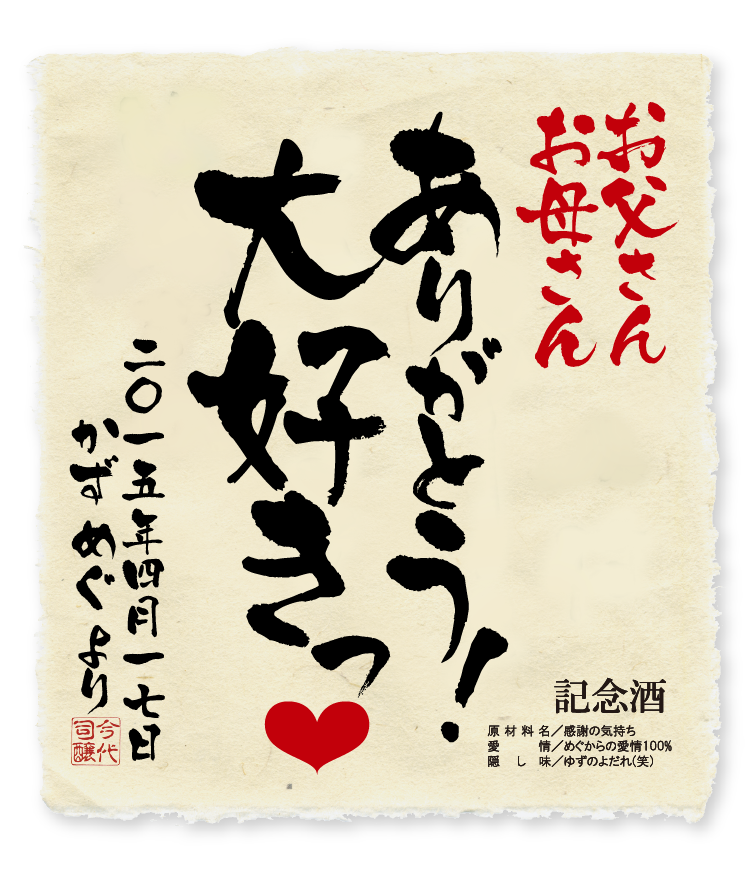 お父さん
お母さん
ありがとう！
大好きっ
二〇一五年四月一七日
かずめぐより
今代
司醸
記念酒
原材料名／感謝の気持ち
愛情／めぐからの愛情100%
隠し味／ゆずのよだれ(笑)